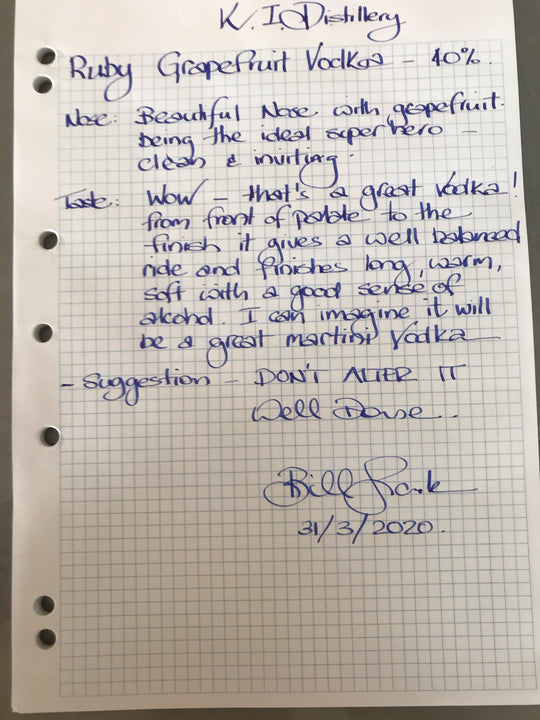 K.I. Distillery
Ruby Grapefruit Vodka - 40%.
Nose: Beautiful Nose with grapefruit
being the ideal super hero -
clean & inviting.
Taste: Wow - that's a great Vodka!
from front of palate to the
finish it gives a well balanced
ride and finishes long, warm,
soft with a good sense of
alcohol. I can imagine it will
be a great martini Vodka
- Suggestion - DON'T ALTER IT
Well Done..
Bill
31/3/2020.